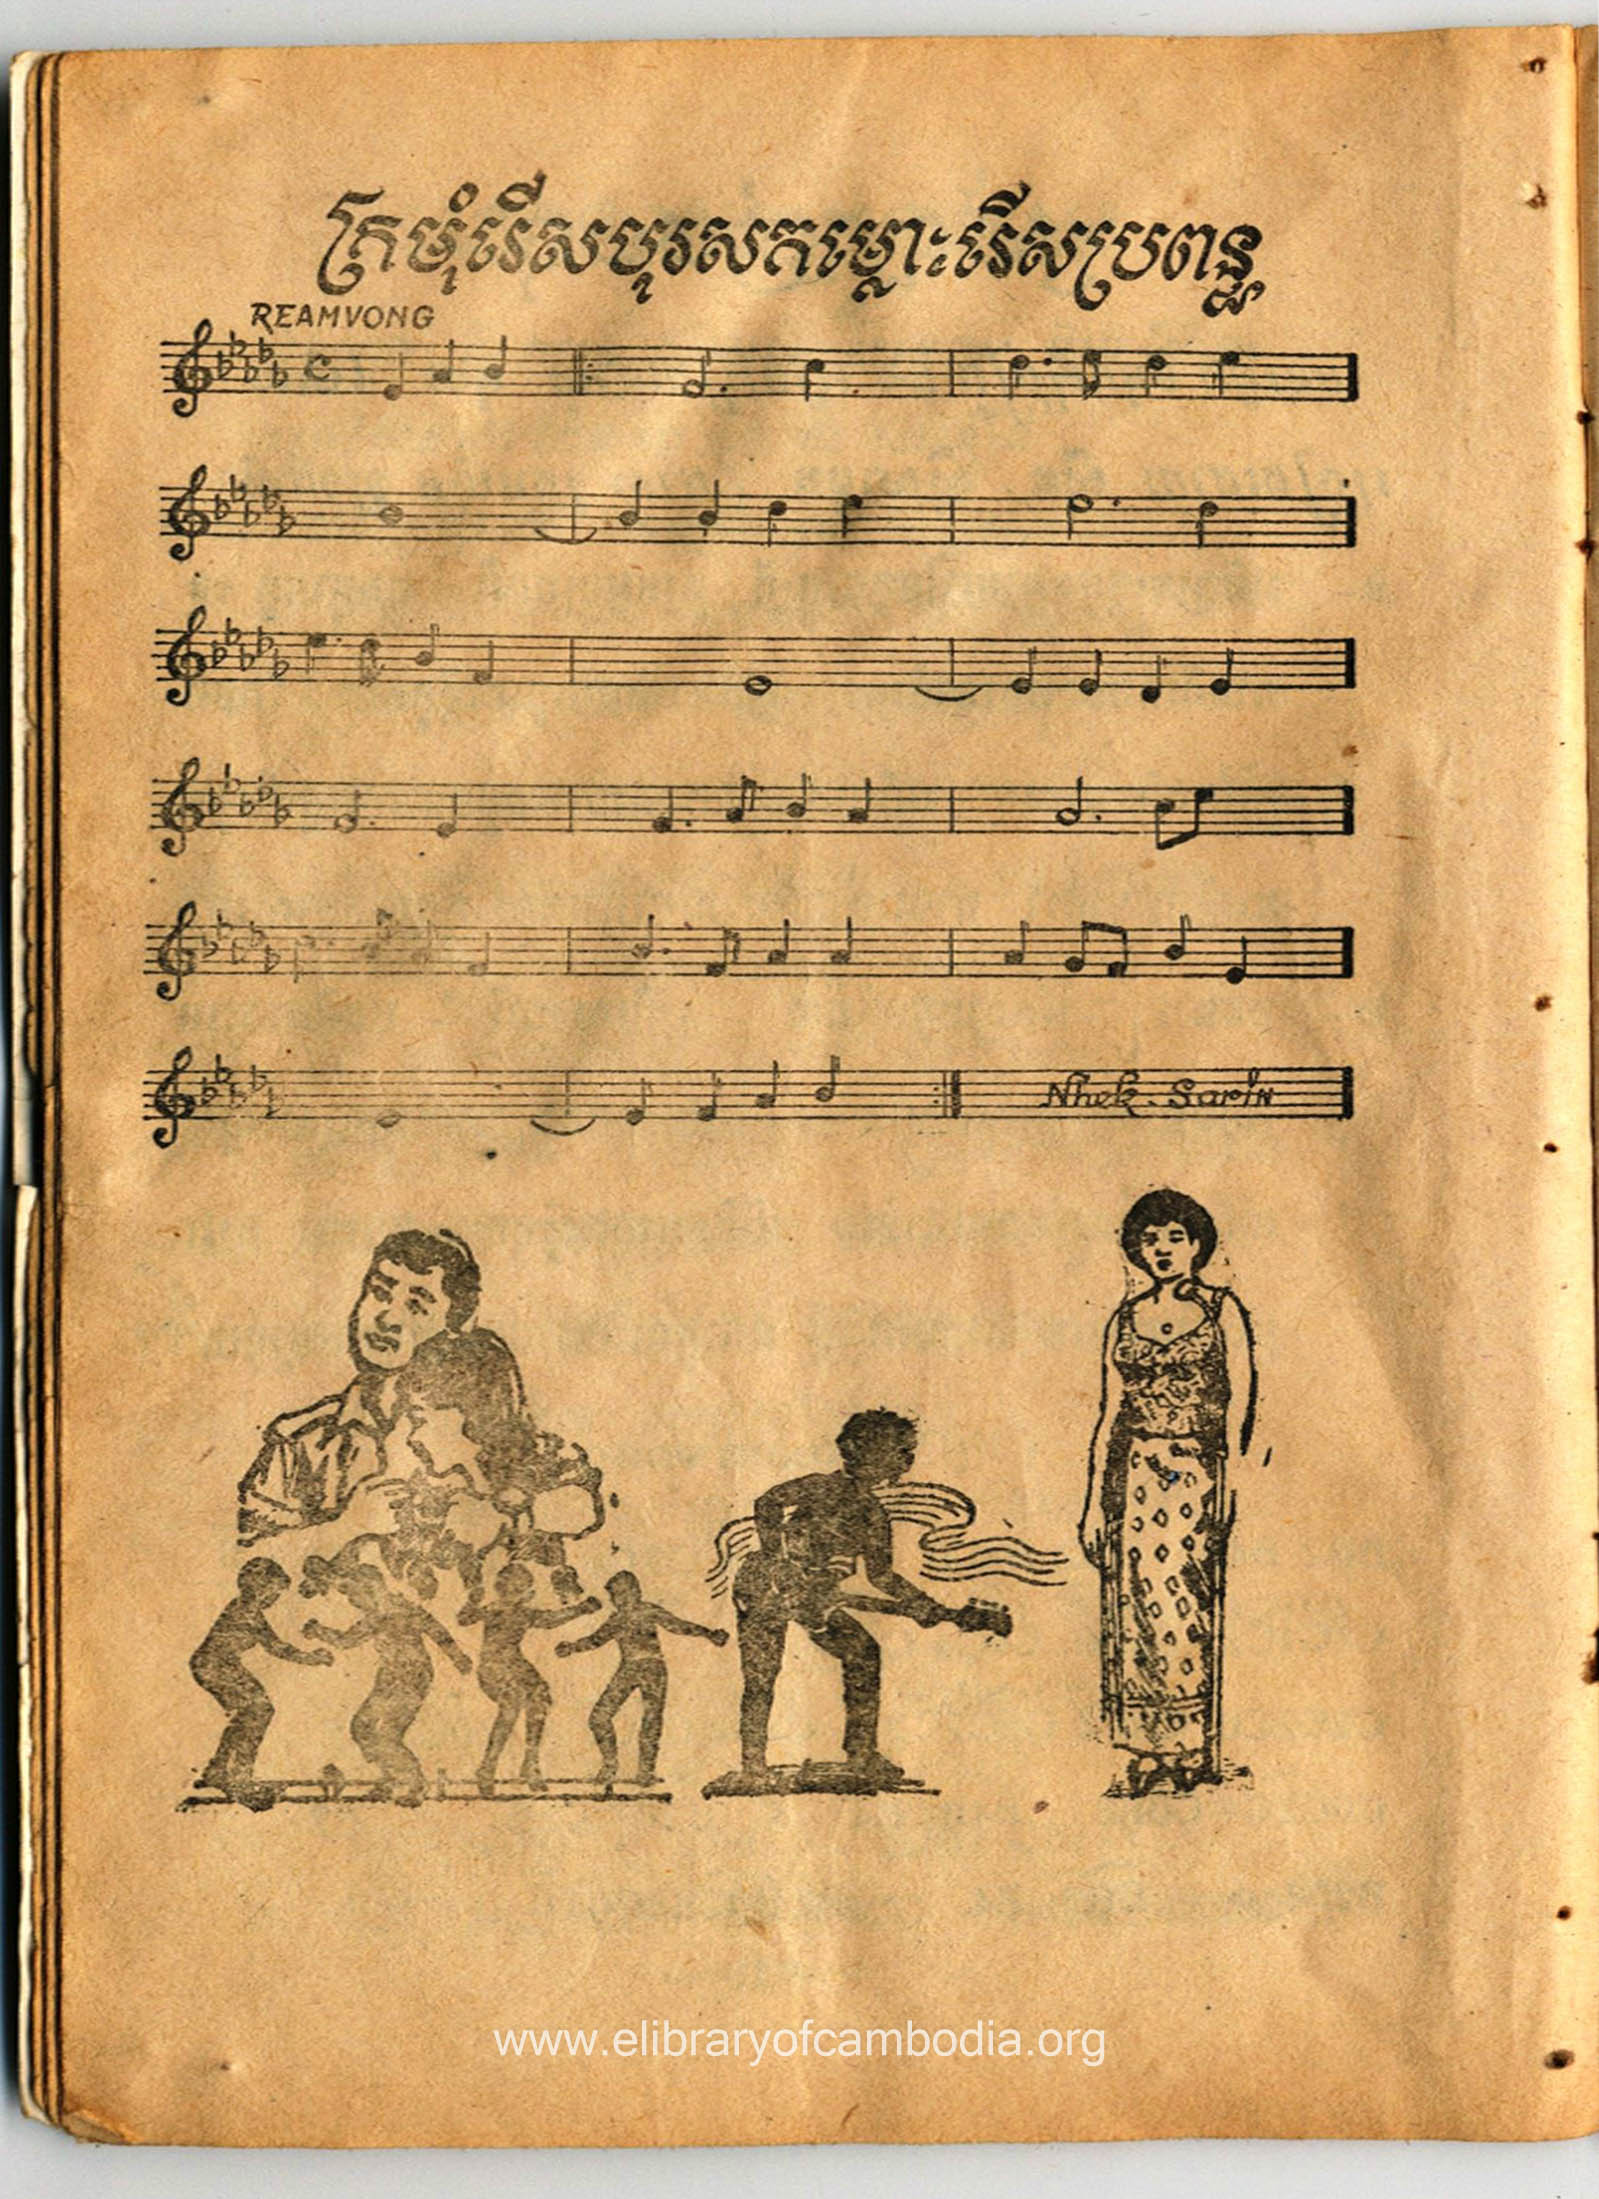 ក្រមុំរើសបុរសកម្លោះរើសប្រពន្ធ
REAMVONG
Nhek. Sarin
www.elibraryofcambodia.org